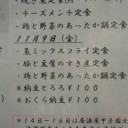 ・チーズメンチ定食
・鶏と野菜のあったか鍋定食
11月9日(金)
・魚ミックスフライ定食
・豚と豆腐のすき煮定食
・鶏と野菜のあったか鍋定食
※納豆とろろ¥100
※おくら納豆¥100